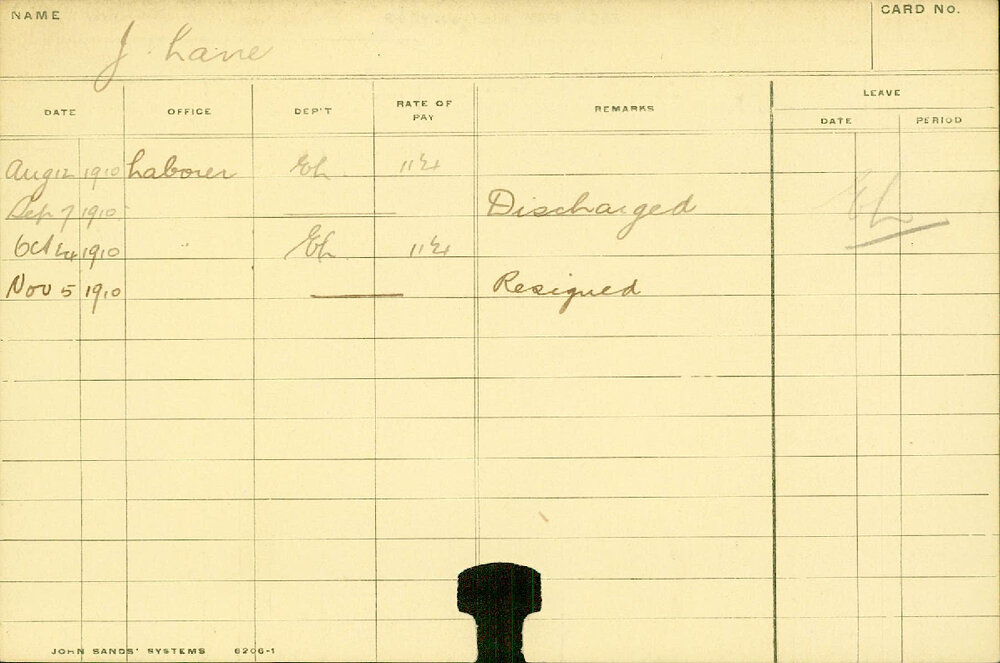 NAME
CARD NO.
J. Lane
LEAVE
DATE OFFICE DEP'T RATE OF PAY REMARKS DATE PERIOD
Aug 12 1910 Laborer EL
Sep 7 1910 Discharged EL
Oct 24 1910 " EL
Nov 5 1910 Resigned
JOHN SANDS' SYSTEMS 6206-1